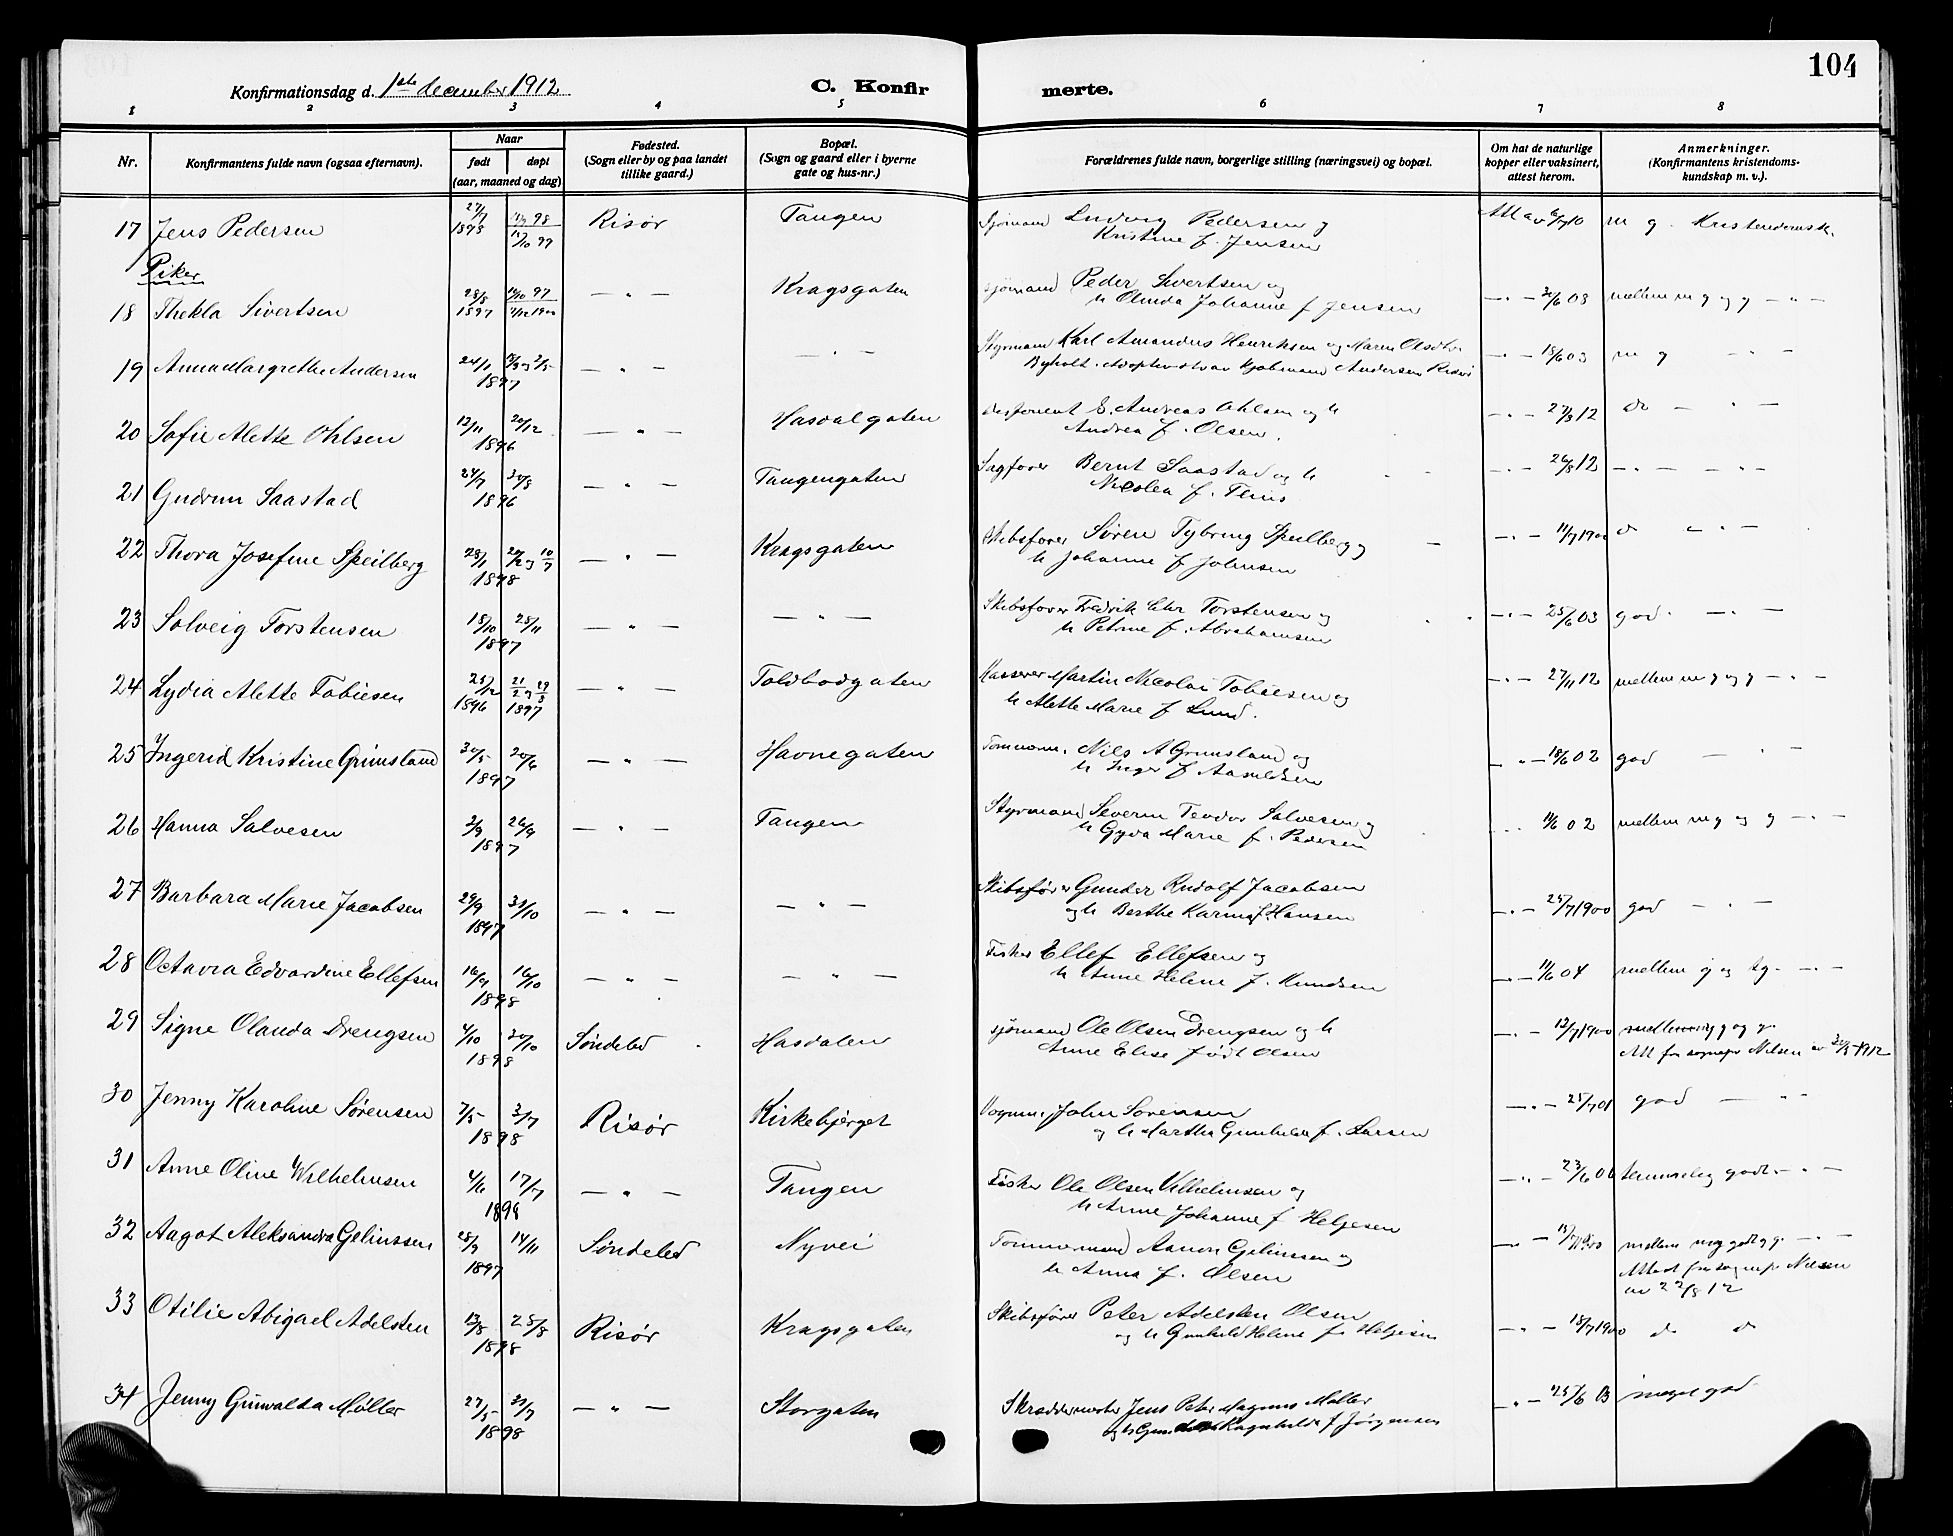 104
Konfirmationsdag d. 1ste december 1912
C. Konfirmerte.
1 2 3 4 5 6 7 8
Nr.
Konfirmantens fulde navn (ogsaa efternavn).
Naar
født døpt
(aar, maaned og dag)
Fødested.
(Sogn eller by og paa landet
tillike gaard.)
Bopæl.
(Sogn og gaard eller i byerne
gate og hus-nr.)
Forældrenes fulde navn, borgerlige stilling (næringsvei) og bopæl.
Om hat de naturlige
kopper eller vaksinert,
attest herom.
Anmerkninger.
(Konfirmantens kristendoms-
kundskap m. v.).
17 Jens Pedersen 27/7 1898 Risør Tangen Sjømand Ludvig Pedersen og
Kristine f. Jensen
Piker
18 Thekla Sivertsen 28/8 1897 — " — Kragsgaten sjømand Peder Sivertsen og
h Olinda Johanne f Jensen
19 Anna Margrethe Andersen 24/1 1897 — " — — " — Styrmand Karl Amandus Henriksen og Maren
20 Sofie Alette Ohlsen 12/11 20/12 1896 — " — Hasdalgaten Disponent E. Andreas Ohlsen og h
Andrea f. Olsen. — " — 27/9 12 do — " —
21 Gudrun Saastad 24/7 30/8 1896 — " — Tangengaten Sagfører Bernt Saastad og h
Nicolea f. — " — 26/8 12 — " — — " —
22 Thora Josefine Speilberg 28/1 1898 — " — Kragsgaten Skibsfører Søren Tybring Speilberg og
h Johanne f Johnsen — " — 11/7 1900
23 Solveig Torstensen 18/10 28/11 1897 — " — — " — Skibsfører Fredrik Chr Torstensen og
h Petrine f. Abrahamsen — " — 25/6 03 god. — " —
24 Lydia Alette Tobiesen 25/12 1896 1897 — " — Toldbodgaten Kasserer Martin Nicolai Tobiesen og
h Alette Marie f Lund. — " — 27/11 12 mellem mg og g — " —
25 Ingerid Kristine Grimsland 30/5 20/6 1897 — " — Havnegaten Tømmerm. Nils A Grimsland og
h Inger f — " — 18/6 02 god — " —
26 Hanna Salvesen 2/9 26/9 1897 — " — Tangen Styrmand Severin Teodor Salvesen og
h Gyda Marie f. Pedersen 11/6 02 mellem mg og g — " —
27 Barbara Marie Jacobsen 29/9 31/10 1897 — " — — " — Skibsfører Gunder Rudolf Jacobsen
og h Berthe Karine f. Hansen — " — 25/7 1900 god — " —
28 Octavia Edvardine Ellefsen 16/9 16/10 1898 — " — — " — Fisker Ellef Ellefsen og
h Anne Helene f. Knudsen — " — 11/6 04 mellem g og tg. — " —
29 Signe Olanda Drengsen 4/10 30/10 1898 Søndeled Hasdalen sjømand Ole Olsen Drengsen og h
Anne Elise født Olsen — " — 12/7 1900
Att fra sognepr Nilsen
30 Jenny Karoline Sørensen 7/5 3/7 1898 Risør Kirkebjerget Vognm. John Sørensen
og h Marthe Gunhilde f. Larsen — " — 25/7 01 god — " —
31 Anne Oline Wilhelmsen 4/6 17/7 1898 — " — Tangen Fisker Ole Olsen Vilhelmsen og
h Anne Johanne f Helgesen — " — 23/6 06 temmelig godt. — " —
32 Aagot Aleksandra Geliussen 28/9 14/11 1897 Søndeled Nyvei Tømmermand Aanon Geliussen og
h Anna f. Olsen
Attest fra sognepr Nilsen
av 22/8 12
33 Otilie Abigael Adelsten 13/8 28/8 1898 Risør Kragsgaten Skibsfører Peter Adelsten Olsen
og h Gunhild Helene f. Helgesen — " — 18/7 1900 do do
34 Jenny Gunvalda Møller 27/5 31/7 1898 — " — Storgaten Skræddermester Jens Peter Magnus Møller
Ragnhilda f Jørgensen — " — 25/6 03 meget god